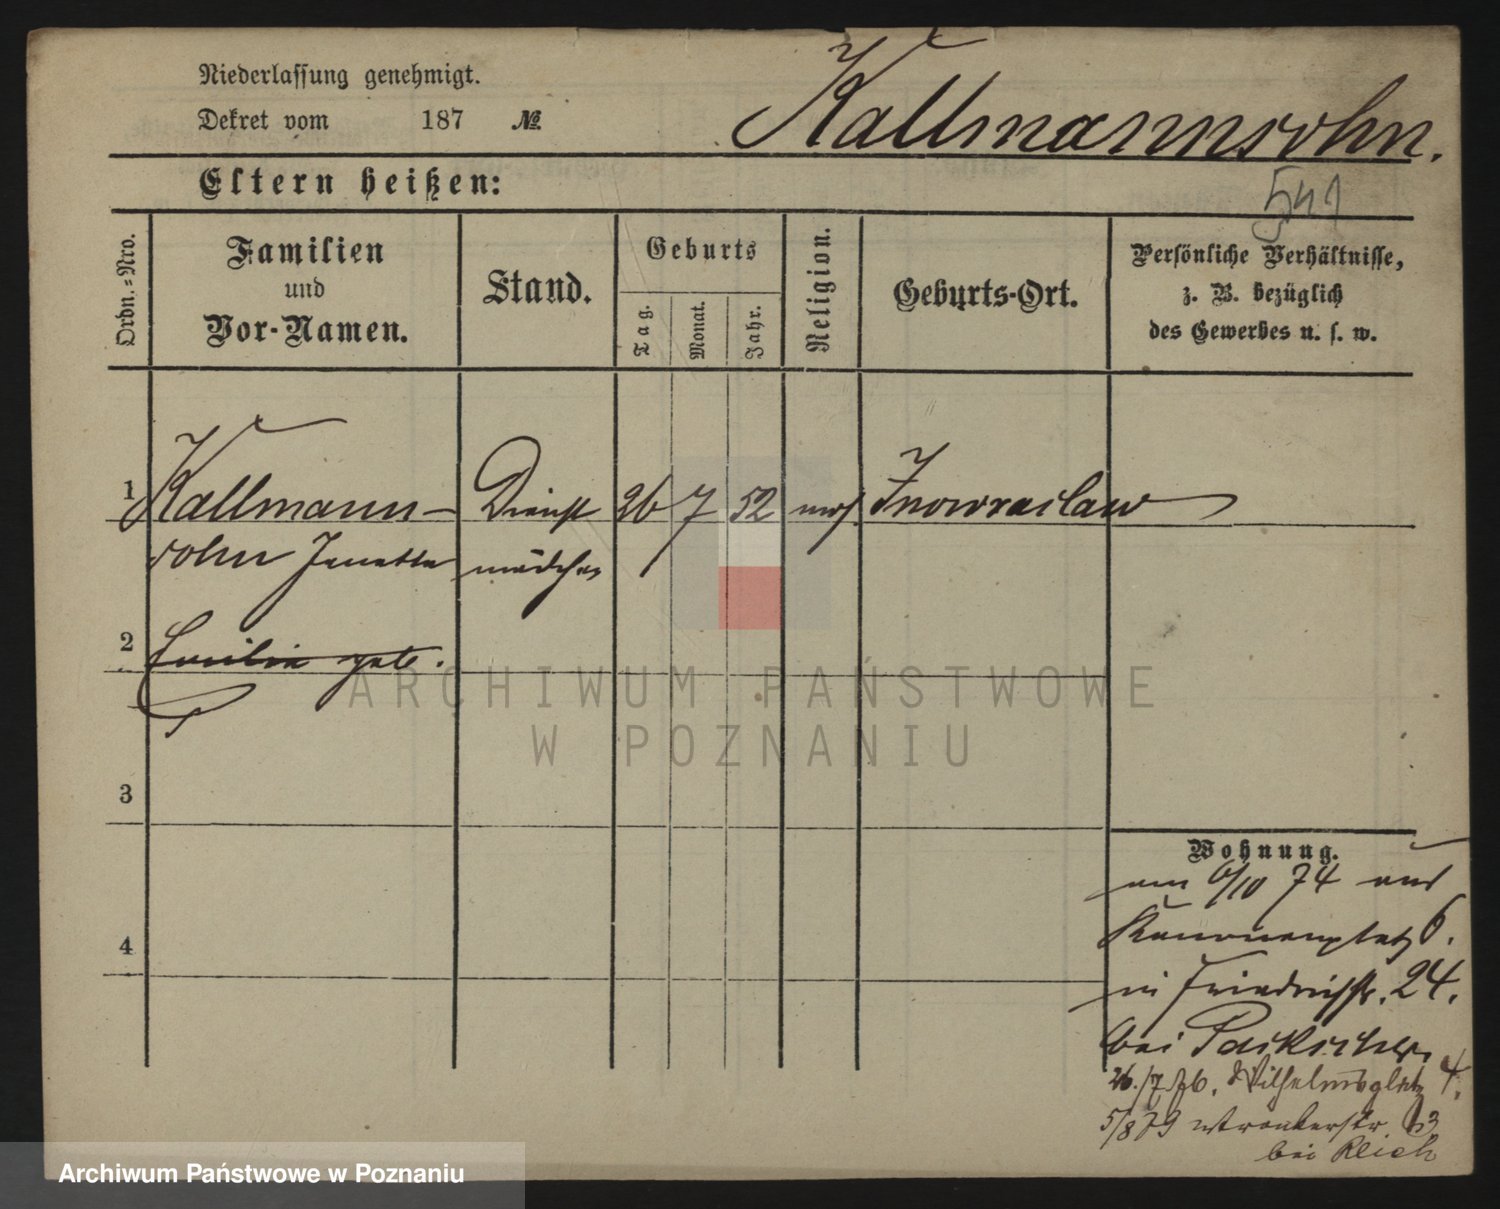 Niederlassung genehmigt.
Dekret vom 187 №
Kallmannsohn.
Eltern heißen:
541
Ordn.-Nro.
Familien
und
Vor-Namen.
Stand.
Geburts
Tag.
Monat.
Jahr.
Religion.
Geburts-Ort.
Persönliche Verhältnisse,
z. B. bezüglich
des Gewerbes u. s. w.
1 Kallmann- Dienst 26 7 52 mos. Inowraclaw
sohn Jenette mädchen
2
3
4
Wohnung.
am 6/10 74 aus
Kanonenplatz 6.
in Friedrichstr. 24.
bei
26./7 76. Wilhelmsplatz 4.
5/8 79 Wronkerstr
bei Reich
ARCHIWUM PAŃSTWOWE
W POZNANIU
Archiwum Państwowe w Poznaniu